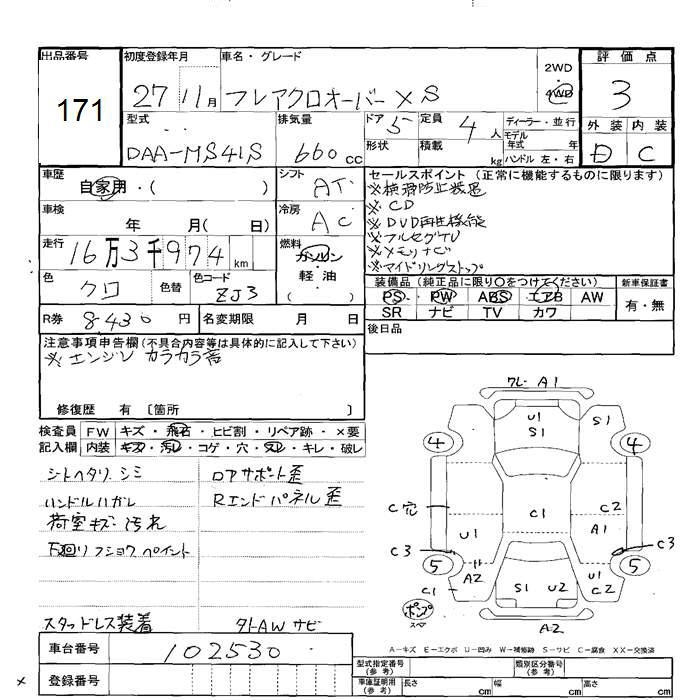 出品番号
171
初度登録年月
27 11月
車名・グレード
フレアクロオーバー XS
2WD
4WD
評価点
3
外装 内装
D C
型式
DAA-MS41S
排気量
660 cc
ドア 5
形状
定員 4 人
積載 kg
ディーラー・並行
モデル年式 年
ハンドル 左・右
車歴
自家用・( )
シフト
AT
車検
年 月( 日)
冷房
AC
走行
16万3千974 km
燃料
ガソリン
軽・油
( )
色
クロ
色替
色コード
ZJ3
R券 8.430 円
名変期限 月 日
セールスポイント (正常に機能するものに限ります)
※横滑防止装置
※CD
※DVD再生機能
※フルセグTV
※メモリナビ
※アイドリングストップ
装備品 (純正品に限り○をつけてください)
PS PW ABS エアB AW
SR ナビ TV カワ
新車保証書
有・無
後日品
注意事項申告欄 (不具合内容等は具体的に記入して下さい)
※エンジン カラカラ音
修復歴 有 〔箇所 〕
検査員記入欄
FW キズ・飛石・ヒビ割・リペア跡・×要
内装 キズ・汚レ・コゲ・穴・欠レ・キレ・破レ
シトヘタリ シミ
ハンドルハガレ
荷室キズ 汚れ
下廻リフショクペイント
スタッドレス装着
ロアサポート歪
Rエンドパネル歪
タトAWサビ
車台番号
102530
登録番号
×
フレー A1
U1
S1
S1
4
4
C穴
C1
C2
A1
U1
C3
C3
5
5
A2
C1
S1
U2
U1
C2
ポンプ
スペア
A2
A-キズ E-エクボ U-凹み W-補修跡 S-サビ C-腐食 XX-交換済
型式指定番号
(参考)
類別区分番号
(参考)
車庫証明用
(参考)
長さ cm
幅 cm
高さ cm